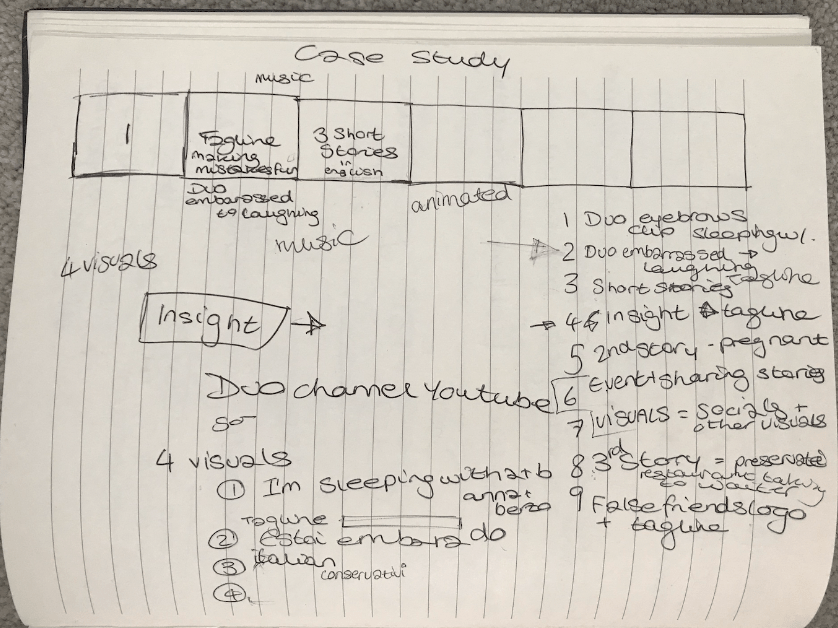 Case Study
music
1
Tagline
making
mistakes fun
3 Short
Stories
in
english
Duo
embarassed
to laughing
animated
music
4 visuals
Insight
Duo channel Youtube
so
4 visuals
① I'm sleeping with
anna +
Tagline
② Estoi embarado
③ italian
conservativi
④.
1 Duo eyebrows
clip sleeping w/.
2 Duo embarrassed →
laughing
Tagline
3 Short stories
4 insight → tagline
5 2nd story - pregnant
6 Event + sharing stories
7 VISUALS = Socials +
other visuals
8 3rd Story = preservative
restaurant talking
to waiter
9 False friends logo
+ tagline